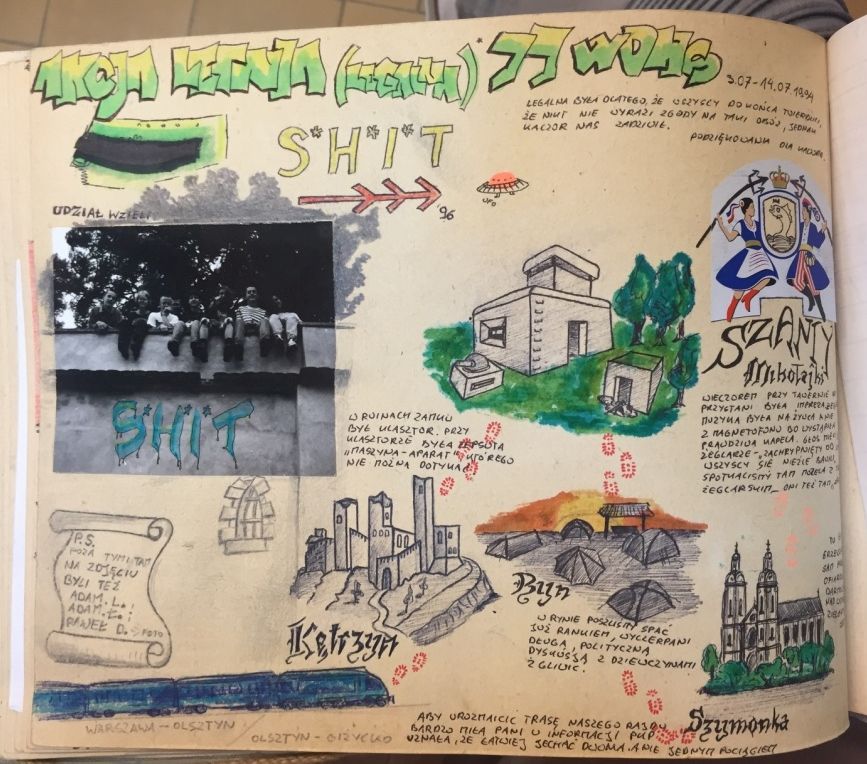 AKCJA LETNIA (LEGALNA) 77 WDHS
3.07-14.07.1994
LEGALNA BYŁA DLATEGO, ŻE WSZYSCY DO KOŃCA TWIERDZILI,
ŻE NIKT NIE WYRAZI ZGODY NA TAKI OBÓZ, JEDNAK
KACZOR NAS ZADZIWIŁ.
PODZIĘKOWANIA DLA KACZORA.
S*H*I*T
'96
UFO
UDZIAŁ WZIELI
S*H*I*T
SZANTY
Mikołajki
WIECZOREM PRZY TAWERNIE W
PRZYSTANI BYŁA IMPREZA
MUZYKA BYŁA NA ŻYWCA A NIE
Z MAGNETOFONU BO WYSTĄPIŁA
PRAWDZIWA KAPELA. GŁOS MIELI
ŻEGLARSKI - "ZACHRYPNIĘTY DO
WSZYSCY SIĘ NIEŹLE BAWILI
SPOTKALIŚMY TAM
ŻEGLARSKIM ONI TEŻ TAM
W RUINACH ZAMKU
BYŁ KLASZTOR. PRZY
KLASZTORZE BYŁA ZEPSUTA
"MASZYNA-APARAT" KTÓREGO
NIE MOŻNA DOTYKAĆ
P.S.
POZA TYMI TAM
NA ZDJĘCIU
BYLI TEŻ
ADAM. L.;
ADAM. Ł.;
PAWEŁ D. → FOTO
Kętrzyn
Ryn
W RYNIE POSZLIŚMY SPAĆ
JUŻ RANKIEM, WYCZERPANI
DŁUGĄ, POLITYCZNĄ
DYSKUSJĄ Z DZIEWCZYNAMI
Z GLIWIC.
Szymonka
WARSZAWA - OLSZTYN
OLSZTYN - GIŻYCKO
ABY UROZMAICIĆ TRASĘ NASZEGO RAJDU
BARDZO MIŁA PANI W INFORMACJI PKP
UZNAŁA, ŻE ŁATWIEJ JECHAĆ DWOMA. A NIE JEDNYM POCIĄGIEM